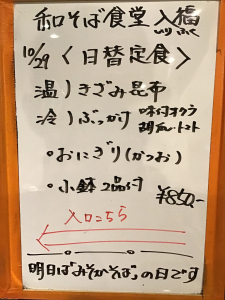 和そば食堂 入福
いりふく
10/29 〈日替定食〉
温）きざみ昆布
冷）ぶっかけ 味付オクラ
胡瓜・トマト
・おにぎり(かつお)
・小鉢2品付 ¥850.-
入口こちら
明日は"みそかそば"の日です